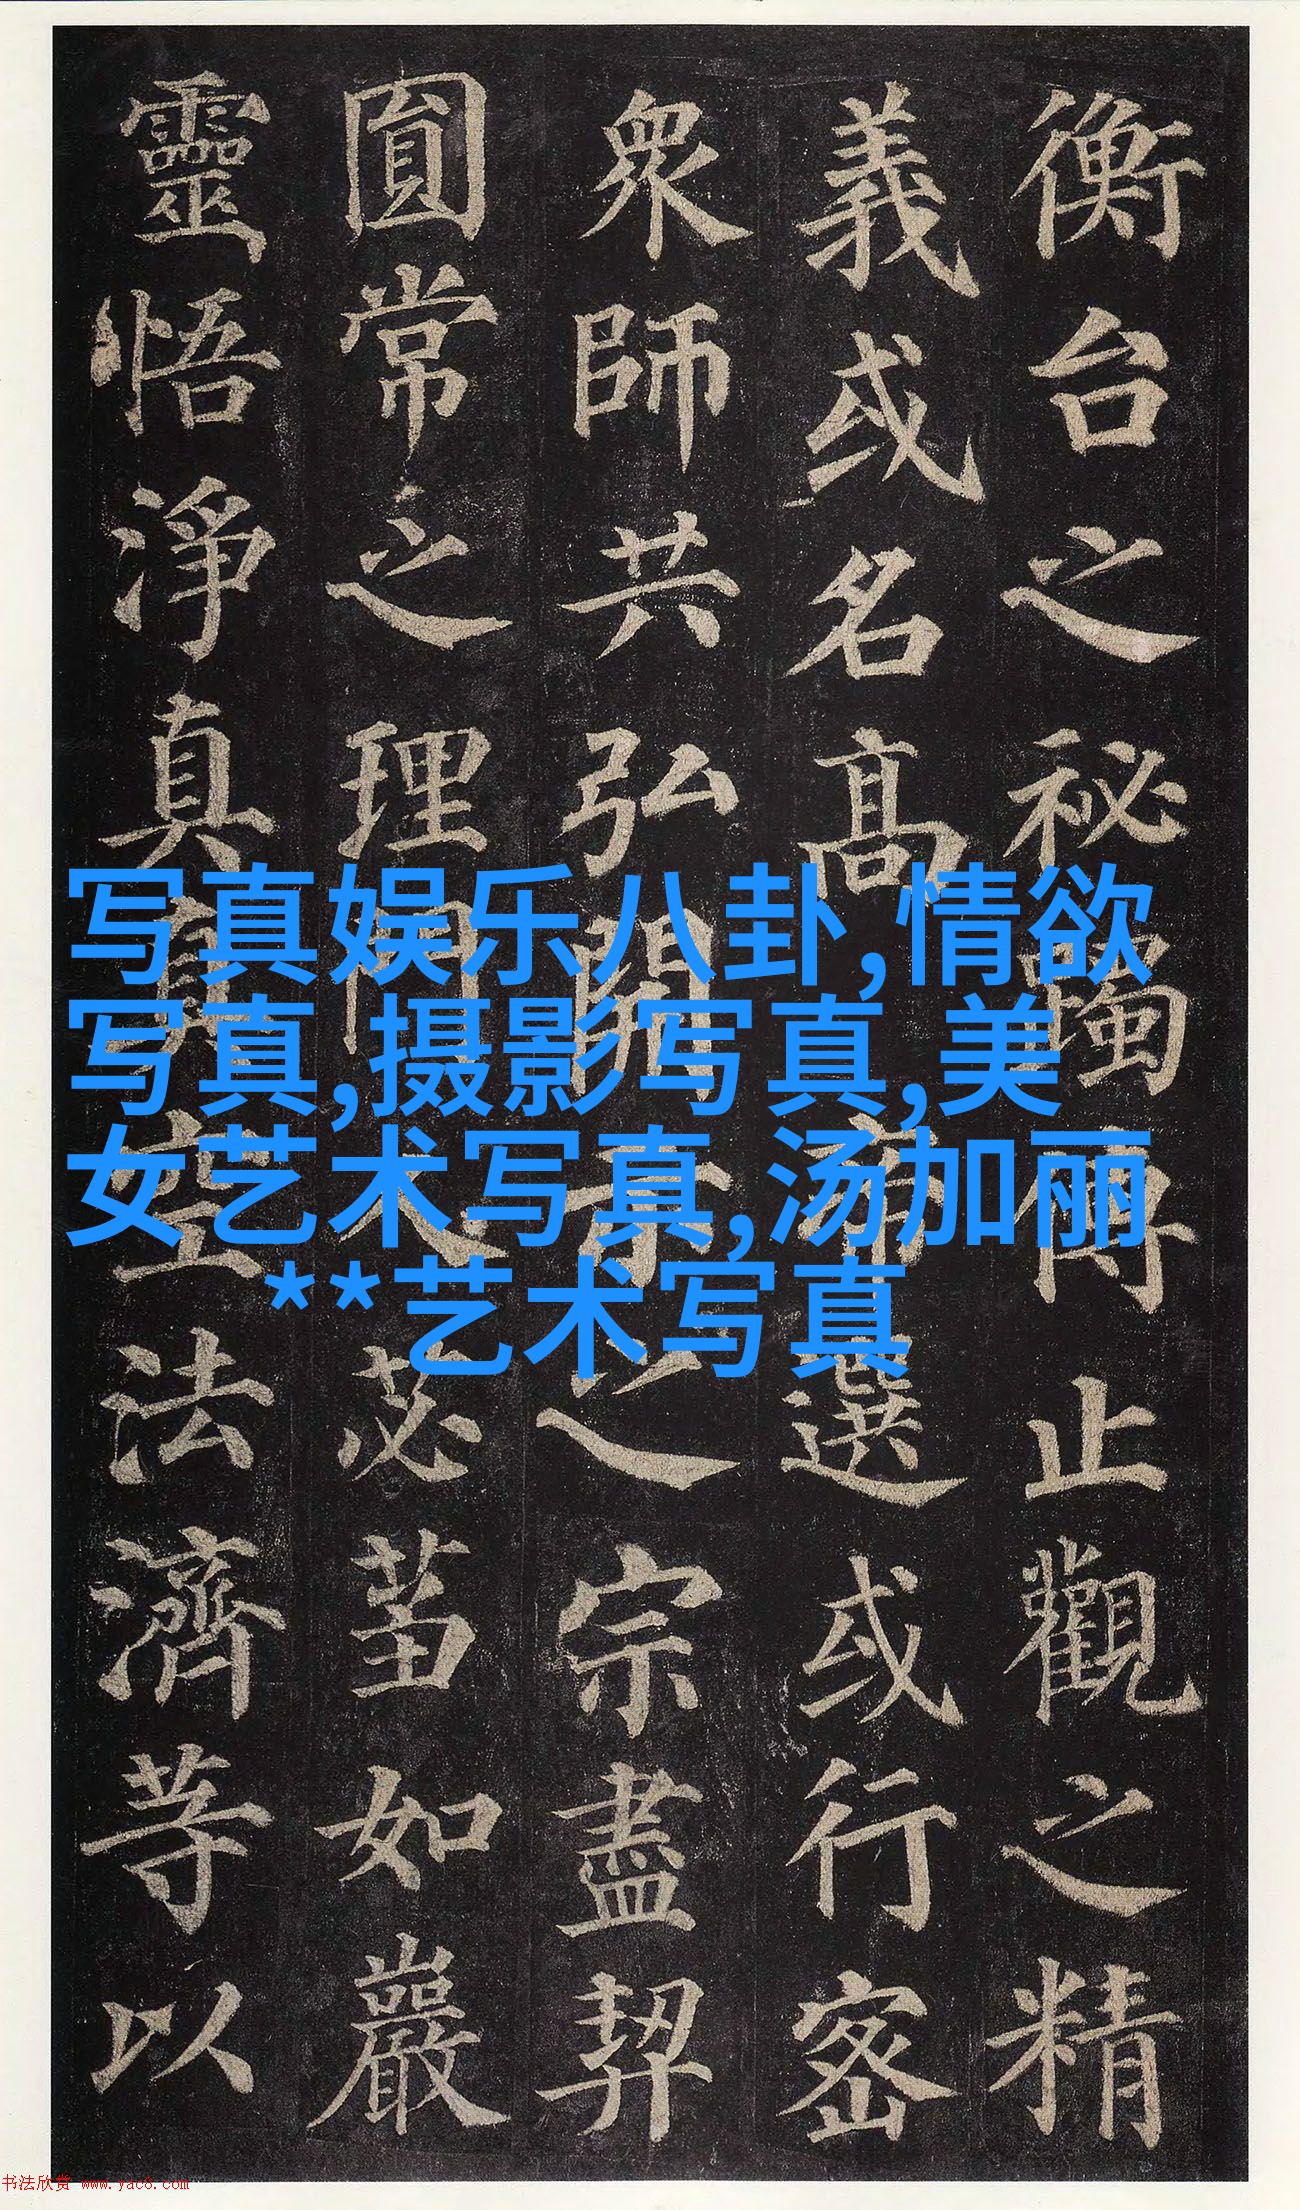 衡台之秘躅傳止觀之精
義或名高帝選或行密
衆師共弘開示之宗盡契
圓常之理門人苾蒭如巖
靈悟淨真真空法濟等以
写真娱乐八卦,情欲
写真,摄影写真,美
女艺术写真,汤加丽
**艺术写真
书法欣赏 www.yac8.com